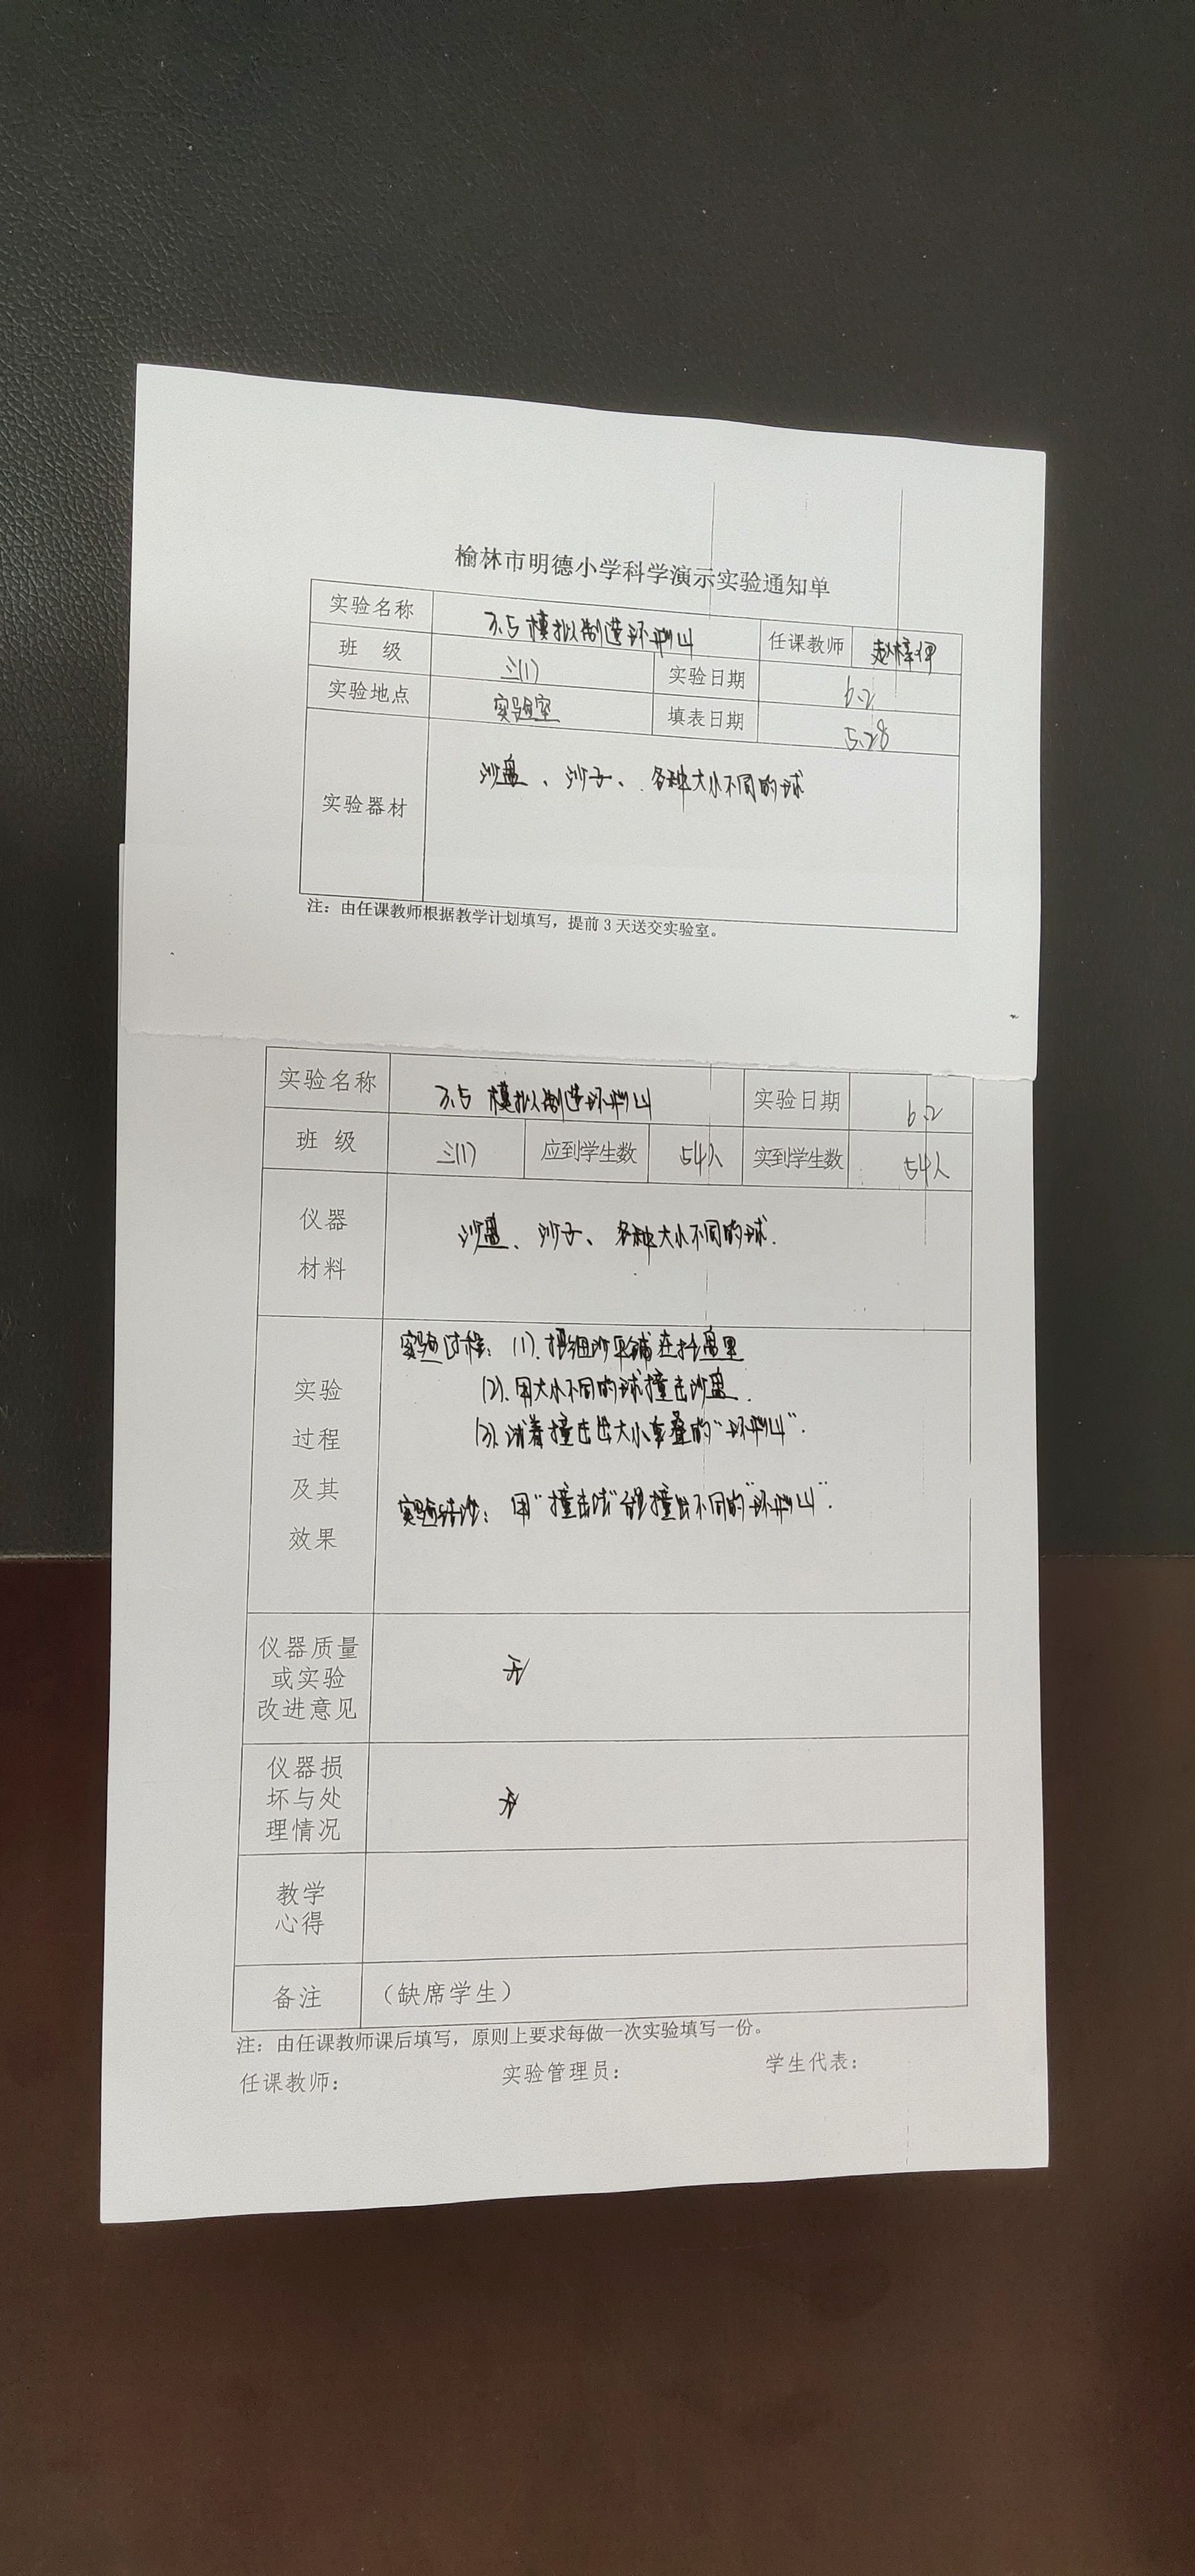 榆林市明德小学科学演示实验通知单
实验名称 3.5 模拟制造环形山 任课教师
班 级 三(1) 实验日期 6.2
实验地点 实验室 填表日期 5.28
实验器材 沙盘、沙子、各种大小不同的球
注：由任课教师根据教学计划填写，提前 3 天送交实验室。
实验名称 3.5 模拟制造环形山 实验日期 6.2
班 级 三(1) 应到学生数 54人 实到学生数 54人
仪器 材料 沙盘、沙子、各种大小不同的球.
实验 过程 及其 效果
实验过程：(1). 把细沙平铺在托盘里
(2). 用大小不同的球撞击沙盘.
(3). 试着撞击出大小重叠的“环形山”.
实验结论：用“撞击法”能撞出不同的“环形山”.
仪器质量 或实验 改进意见 无
仪器损 坏与处 理情况 无
教学 心得
备注 （缺席学生）
注：由任课教师课后填写，原则上要求每做一次实验填写一份。
任课教师： 实验管理员： 学生代表：